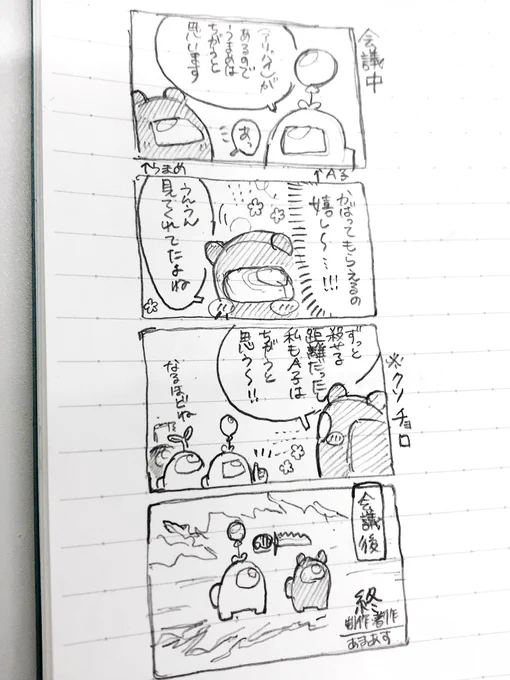 会議中
(アリバイ)が
あるので
うまめは
ちがうと
思います
あっ
↑うまめ
↑A子
かばってもらえるの
嬉し〜…!!!
うんうん
見てくれてたよね
※クソチョロ
ずっと
殺せる
距離だったし
私もA子は
ちがうと
思う〜!!
なるほどね
会議後
終
制作著作